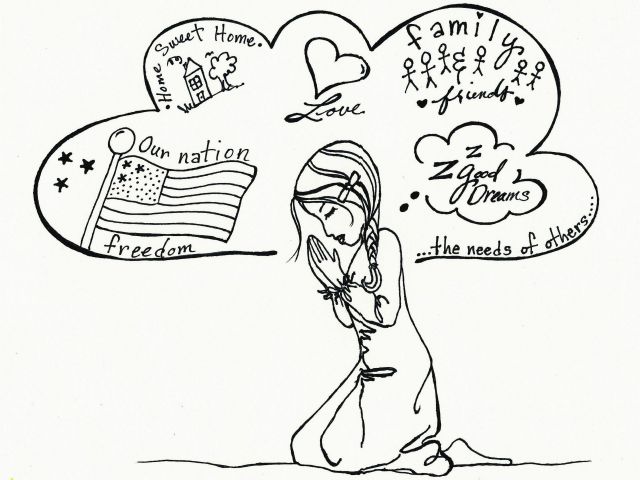 .Home Sweet Home.
Love
family
&
friends
Our nation
freedom
Z Z
Good
Dreams
...the needs of others....